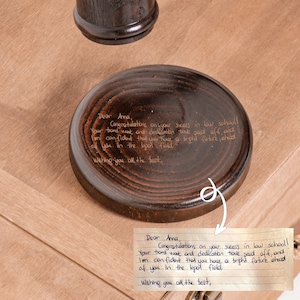 Dear Anna,
Congratulations on your success in law school!
Your hard work and dedication have paid off, and
I am confident that you have a bright future ahead
of you in the legal field.
Wishing you all the best,
Dear Anna,
Congratulations on your success in law school!
Your hard work and dedication have paid off, and
I am confident that you have a bright future ahead
of you in the legal field.
Wishing you all the best,